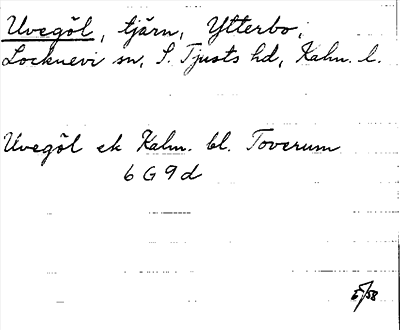 Uvegöl, tjärn, Ytterbo,
Locknevi sn, S. Tjusts hd, Kalm. l.
Uvegöl ek Kalm. bl. Toverum
6 G 9 d